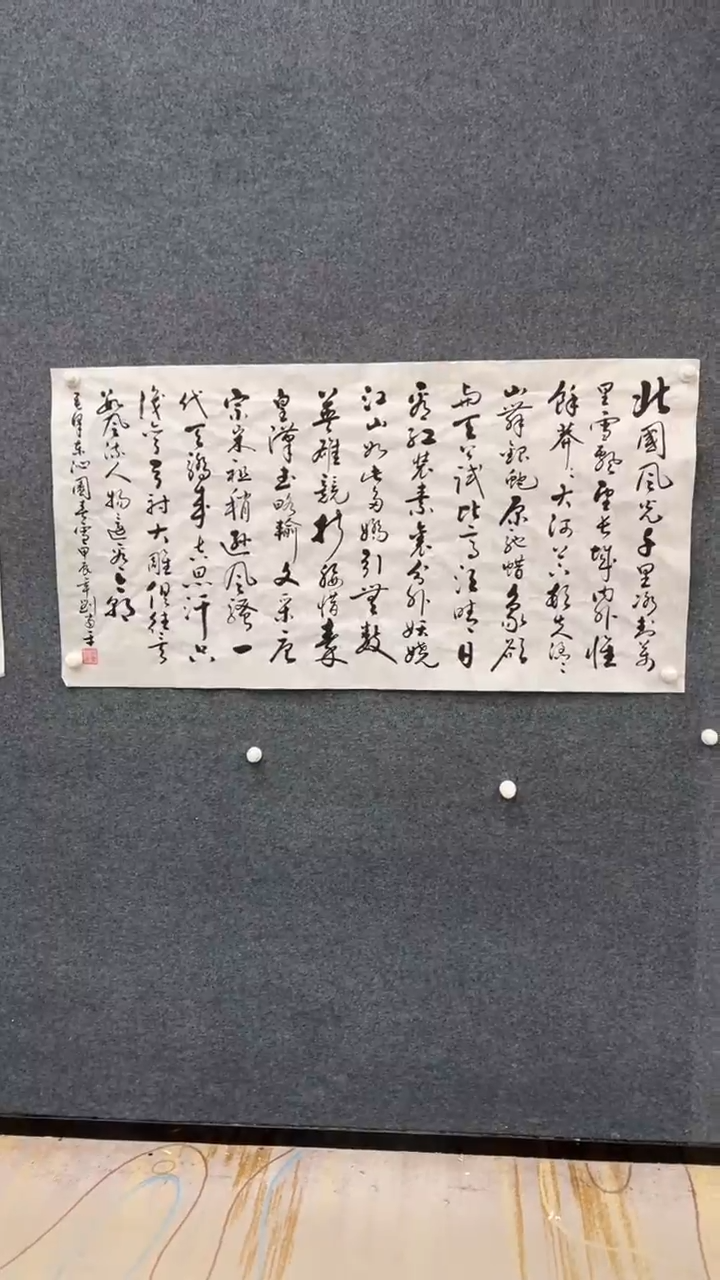 北國風光千里冰封萬
里雪飄望長城內外惟
餘莽莽大河上下頓失滔滔
山舞銀蛇原馳蠟象欲
與天公試比高須晴日
看紅裝素裹分外妖嬈
江山如此多嬌引無數
英雄競折腰惜秦
皇漢武略輸文采唐
宗宋祖稍遜風騷一
代天驕成吉思汗只
識彎弓射大雕俱往矣
數風流人物還看今朝
毛澤東沁園春雪甲辰年劉